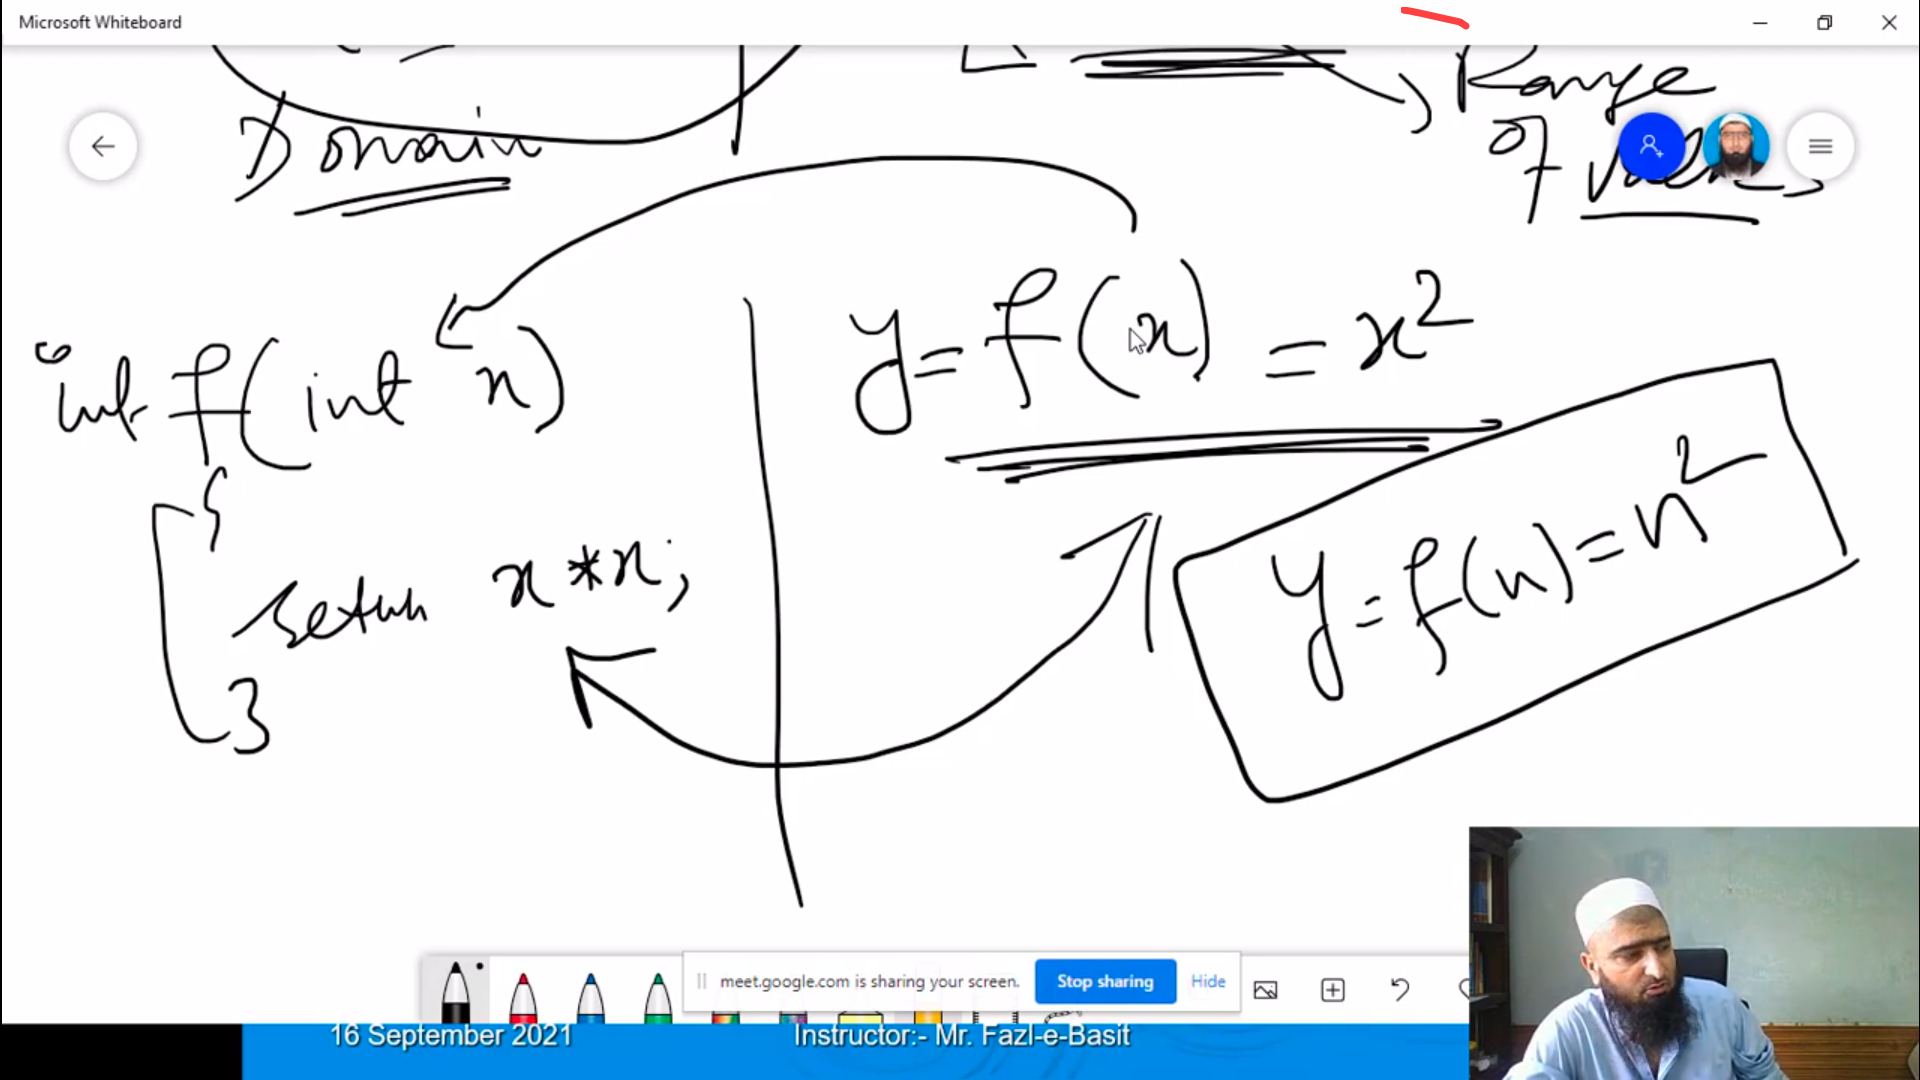 Microsoft Whiteboard
Domain
Range
of Values
int f(int x)
{
return x*x;
}
y=f(x) = x²
y=f(n)=n²
meet.google.com is sharing your screen.
Stop sharing
Hide
16 September 2021
Instructor:- Mr. Fazl-e-Basit